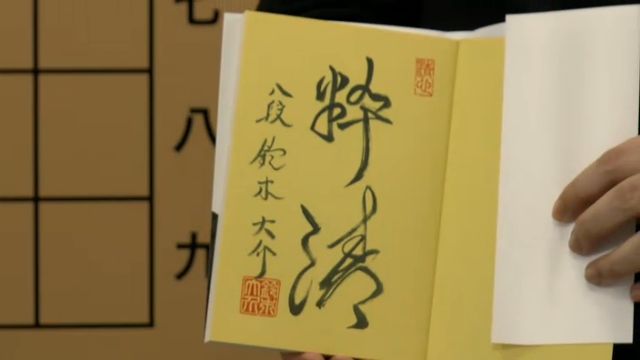 粋清
八段 鈴木大介
七
八
九